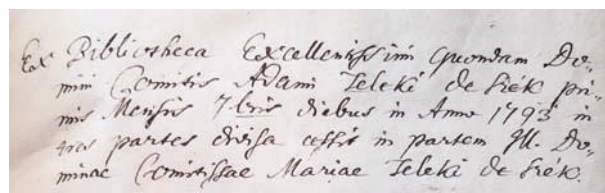 Ex Bibliotheca Excellentissimi quondam Do-
mini Comitis Adami Teleki de Szék pri-
mis Mensis 7bris diebus in Anno 1793 in
tres partes divisa cessit in partem Ill. Do-
minae Comitissae Mariae Teleki de Szék.